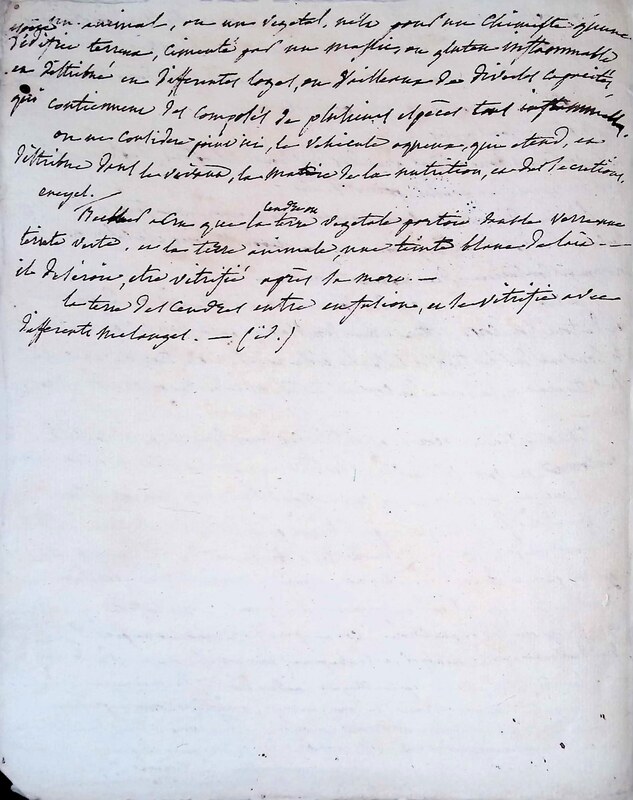 un animal, ou un vegetal, n'est pour un chimiste qu'une
édifice terreux, cimenté par un mastic, ou gluten inflammable
et distribué en differentes loges, ou vaisseaux de diverses capacités
qui contiennent des composés de plusieurs especes tous inflammables.
on ne considere point ici, le vehicule aqueux, qui etend, et
distribue dans les vaisseaux, la matiere de la nutrition, et des secretions.
encycl.
Becker a cru que la terre vegetale portoit
cendre ou
teinte verte. et la terre animale, une teinte blanc de lait —
il desiroit, etre vitrifié après sa mort. —
la terre des cendres entre en fusion, et se vitrifie avec
differents melanges. — (id.)